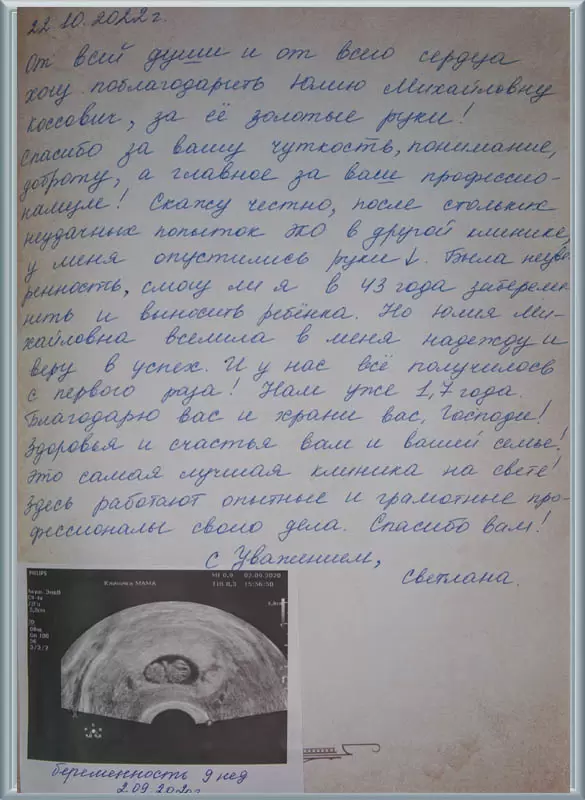 22.10.2022г.
От всей души и от всего сердца
хочу поблагодарить Юлию Михайловну
Коссович, за её золотые руки!
Спасибо за вашу чуткость, понимание,
доброту, а главное за ваш профессио-
нализм! Скажу честно, после стольких
неудачных попыток ЭКО в другой клинике,
у меня опустились руки ↓. Была неуве-
ренность, смогу ли я в 43 года заберемен-
нить и выносить ребёнка. Но Юлия Ми-
хайловна вселила в меня надежду и
веру в успех. И у нас всё получилось
с первого раза! Нам уже 1,7 года.
Благодарю вас и храни вас, Господи!
Здоровья и счастья вам и вашей семье!
Это самая лучшая клиника на свете!
Здесь работают опытные и грамотные про-
фессионалы своего дела. Спасибо вам!
с Уважением,
Светлана.
PHILIPS Клиника МАМА MI 0,9 02.09.2020
15:56:50
беременность 9 нед
2.09.2020г.